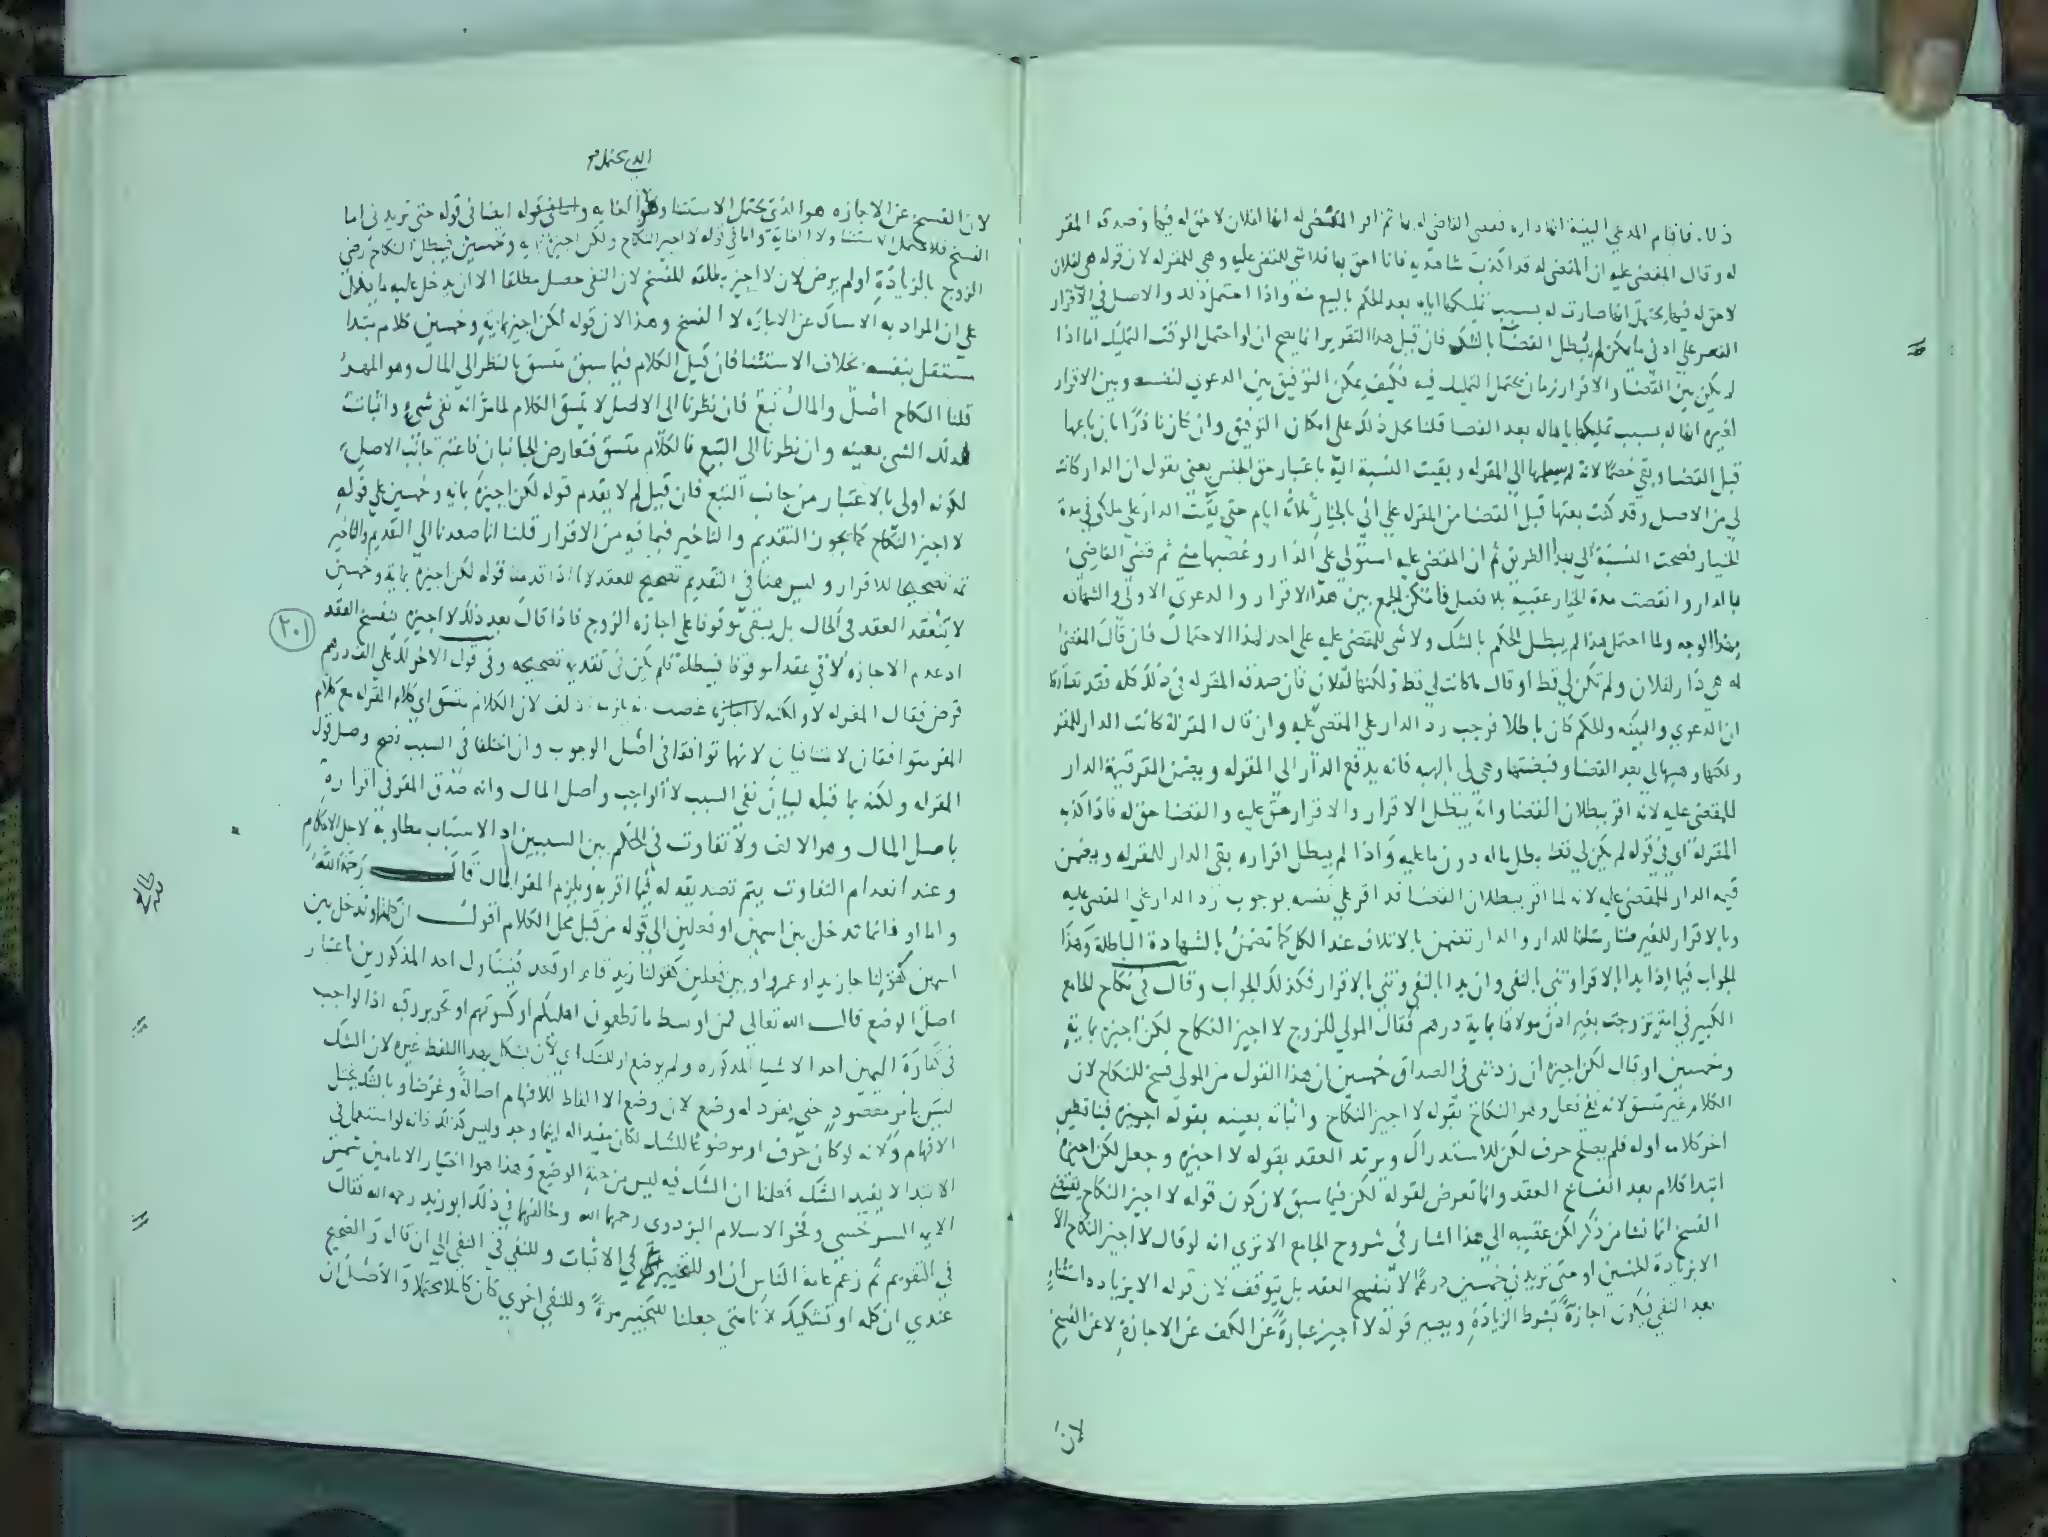 ذلك فاقام المدعي البينة انها داره فقضى القاضي له بها ثم اقر المقضى له انها لفلان لا حق له فيها وصدقه المقر
له وقال المقضى عليه ان المقضى له قد اكذب شاهديه فانا احق بها فلا شي للمقضى عليه وهي للمقر له لان قوله هي لفلان
لا حق له فيها يحتمل انها صارت له بسبب تمليكها اياه بعد الحكم بالبيع منه واذا احتمل ذلك والاصل في الاقرار
القصر على ادنى ما يمكن لم يبطل القضا بالشك فان قيل هذا التقرير انما يصح ان لو احتمل الوقت التمليك اما اذا
لم يكن بين القضا والاقرار زمان يحتمل التمليك فيه فكيف يمكن التوفيق بين الدعوي لنفسه وبين الاقرار
لغيره انها له بسبب تمليكها اياه بعد القضا قلنا يحمل ذلك على امكان التوفيق وان كان نادرا بان باعها
قبل القضا وبقي خصما لانه لم يسلمها الى المقر له وبقيت النسبة اليه باعتبار حق الحبس يعني يقول ان الدار كانت
لي من الاصل وقد كنت بعتها قبل القضا من المقر له على اني بالخيار ثلاثة ايام حتى بقيت الدار على ملكي في مدة
الخيار فصحت النسبة الي بهذا الطريق ثم ان المقضى عليه استولى على الدار وغصبها مني ثم قضى القاضي
بالدار وانقضت مدة الخيار عقيبه بلا فصل فامكن الجمع بين هذا الاقرار والدعوي الاولى والشهادة
بهذا الوجه ولما احتمل هذا لم يبطل الحكم بالشك ولا شي للمقضى عليه على احد لهذا الاحتمال فان قال المقضى
له هي دار لفلان ولم تكن لي قط او قال ما كانت لي قط ولكنها لفلان فان صدقه المقر له في ذلك كله فقد تصادقا
ان الدعوي والبينة والحكم كان باطلا فوجب رد الدار على المقضى عليه وان قال المقر له كانت الدار للمقر
ولكنها وهبها لي بعد القضا وقبضتها وهي لي بالهبه فانه يدفع الدار الى المقر له ويضمن المقر قيمة الدار
للمقضى عليه لانه اقر ببطلان القضا وانه يبطل الاقرار والاقرار حق عليه والقضا حق له فاذا كذبه
المقر له اي في قوله لم يكن لي قط بطل ما له دون ما عليه واذا لم يبطل اقراره بقي الدار للمقر له ويضمن
قيمه الدار للمقضى عليه لانه لما اقر ببطلان القضا قد اقر على نفسه بوجوب رد الدار على المقضى عليه
وبالاقرار للغير صار متلفا للدار والدار تضمن بالاتلاف عند الكل كما تضمن بالشهادة الباطلة وهذا
الجواب فيما اذا بدا بالاقرار وثنى بالنفي وان بدا بالنفي وثنى بالاقرار فكذلك الجواب وقال في نكاح الجامع
الكبير في امة تزوجت بغير اذن مولاها بماية درهم فقال المولي للزوج لا اجيز النكاح لكن اجيزه بماية
وخمسين او قال لكن اجيزه ان زدتني في الصداق خمسين ان هذا القول من المولى فسخ للنكاح لان
الكلام غير متسق لانه نفي فعل وهو النكاح بقوله لا اجيز النكاح واثباته بعينه بقوله اجيزه فيناقض
اخر كلامه اوله فلم يصلح حرف لكن للاستدراك ويرتد العقد بقوله لا اجيزه وجعل لكن اجيزه
ابتدا كلام بعد انفساخ العقد وانما تعرض لقوله لكن فيما سبق لان كون قوله لا اجيز النكاح يقتضي
الفسخ انما نشا من ذكر لكن عقيبه الى هذا اشار في شروح الجامع الا ترى انه لو قال لا اجيز النكاح الا
الا بزيادة خمسين او حتى تزيدني خمسين درهما لا ينفسخ العقد بل يتوقف لان قوله الا بزيادة استثناء
بعد النفي فيكون اجازة بشرط الزيادة ويصير قوله لا اجيز عبارة عن الكف عن الاجازة لا عن الفسخ
لان
الذي يحتمل
لان الفسخ عن الاجازه هو الذي يحتمل الاستثنا وهو الغايه وقوله ايضا في قوله حتى تزيدني اما
الفسخ فلا يحتمل الاستثنا ولا الغاية واما في قوله لا اجيز النكاح ولكن اجيزه بمايه وخمسين فيبطل النكاح رضي
الزوج بالزيادة او لم يرض لان لا اجيز مطلقه للفسخ لان النفى حصل مطلقا الا ان يدخل عليه ما يدل
على ان المراد به الامساك عن الاجازه لا الفسخ وهذا لان قوله لكن اجيز بماية وخمسين كلام مبتدا
مستقل بنفسه بخلاف الاستثنا فان قيل الكلام فيما سبق متسق بالنظر الى المال وهو المهر
قلنا النكاح اصل والمال تبع فان نظرنا الى الاصل لا يتسق الكلام لما مر انه نفى شيء واثبات
لذلك الشي بعينه وان نظرنا الى التبع فالكلام متسق فتعارض الجانبان فاعتبر جانب الاصل
لكونه اولى بالاعتبار من جانب التبع فان قيل لم لا يقدم قوله لكن اجيزه بمايه وخمسين على قوله
لا اجيز النكاح كما يجوز التقديم والتاخير فيما فيه من الاقرار قلنا انما صعدنا الى التقديم والتاخير
ثمه تصحيحا للاقرار وليس هنا في التقديم تصحيح للعقد لانا اذا قدمنا قوله لكن اجيزه بماية وخمسين
لا ينعقد العقد في الحال بل يبقى موقوفا على اجازه الزوج فاذا قال بعد ذلك لا اجيزه ينفسخ العقد
٢٠١
اذ عدم الاجازه لاقي عقدا موقوفا فيبطله فلم يكن في تقديمه تصحيحه وفي قول الاخر لك علي الف درهم
قرض فقال المقر له لا ولكنه غصب انه يلزمه الف لان الكلام متسق اي كلام المقر له مع كلام
المقر متوافقان لا متنافيان لانهما توافقا في اصل الوجوب وان اختلفا في السبب فصح وصل قول
المقر له ولكنه بما قبله لبيان نفى السبب لا الواجب واصل المال وانه صدق المقر في اقراره
باصل المال وهو الالف ولا تفاوت في الحكم بين السببين اذ الاسباب مطلوبة لاجل الاحكام
وعند انعدام التفاوت يتم تصديقه له فيما اقر به ويلزم المقر المال قال رحمه الله
واما او فانما تدخل بين اسمين او فعلين الى قوله من قبل محل الكلام اقول ان كلمة او تدخل بين
اسمين كقولنا جا زيد او عمرو او بين فعلين كقولنا زيد قام او قعد فيتناول احد المذكورين باعتبار
اصل الوضع قال الله تعالى من اوسط ما تطعمون اهليكم او كسوتهم او تحرير رقبة اذ الواجب
في كفارة اليمين احد الاشيا المذكوره ولم يوضع او للشك اي لان يشكل بهذا اللفظ غيره لان الشك
ليس بامر مقصود حتى يفرد له وضع لان وضع الالفاظ للافهام اصالة وغرضا وبالشك يختل
الافهام ولانه لو كان حرف او موضوعا للشك لكان مفيدا له اينما وجد وليس كذلك فانه لو استعمل في
الابتدا لا يفيد الشك فعلمنا ان الشك فيه ليس من جهة الوضع وهذا هو اختيار الامامين شمس
الايمه السرخسي وفخر الاسلام البزدوى رحمهما الله وخالفهما في ذلك ابو زيد رحمه الله فقال
في التقويم ثم زعم عامة الناس ان او للتخيير في الاثبات وللنفي في النفي الى ان قال والصحيح
عندي ان كلمه او تشكيك لانا متى جعلنا للتخيير مرة وللنفي اخري كان كالامحتملا والاصل ان